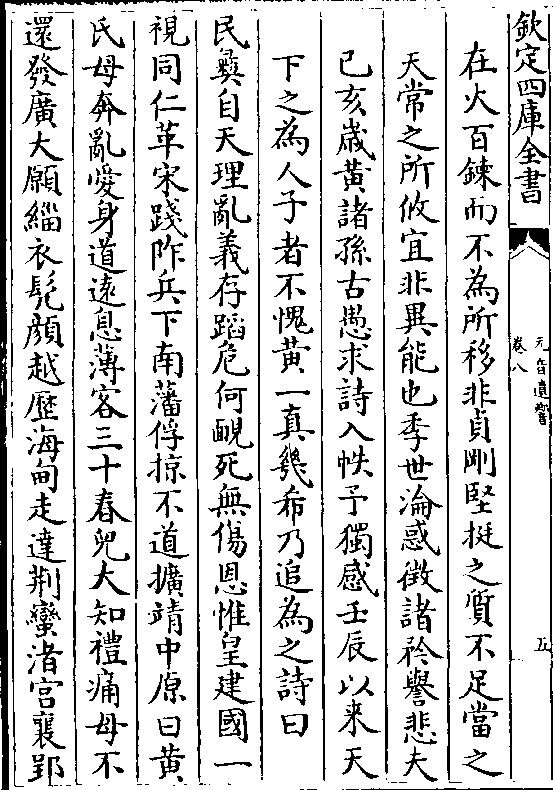 欽定四庫全書
元音遺響
卷八
五
在火百鍊而不為所移非貞剛堅挺之質不足當之
天常之所攸宜非異能也季世淪惑徵諸衿譽悲夫
己亥歲黄諸孫古愚求詩入帙予獨感壬辰以来天
下之為人子者不愧黄一真幾希乃追為之詩曰
民彞自天理亂義存蹈危何覼死無傷恩惟皇建國一
視同仁革宋踐阼兵下南藩俘掠不道擴靖中原曰黄
氏母奔亂愛身道遠息薄客三十春兒大知禮痛母不
還發廣大願緇衣髠顔越歴海甸走達荆蠻渚宫襄郢